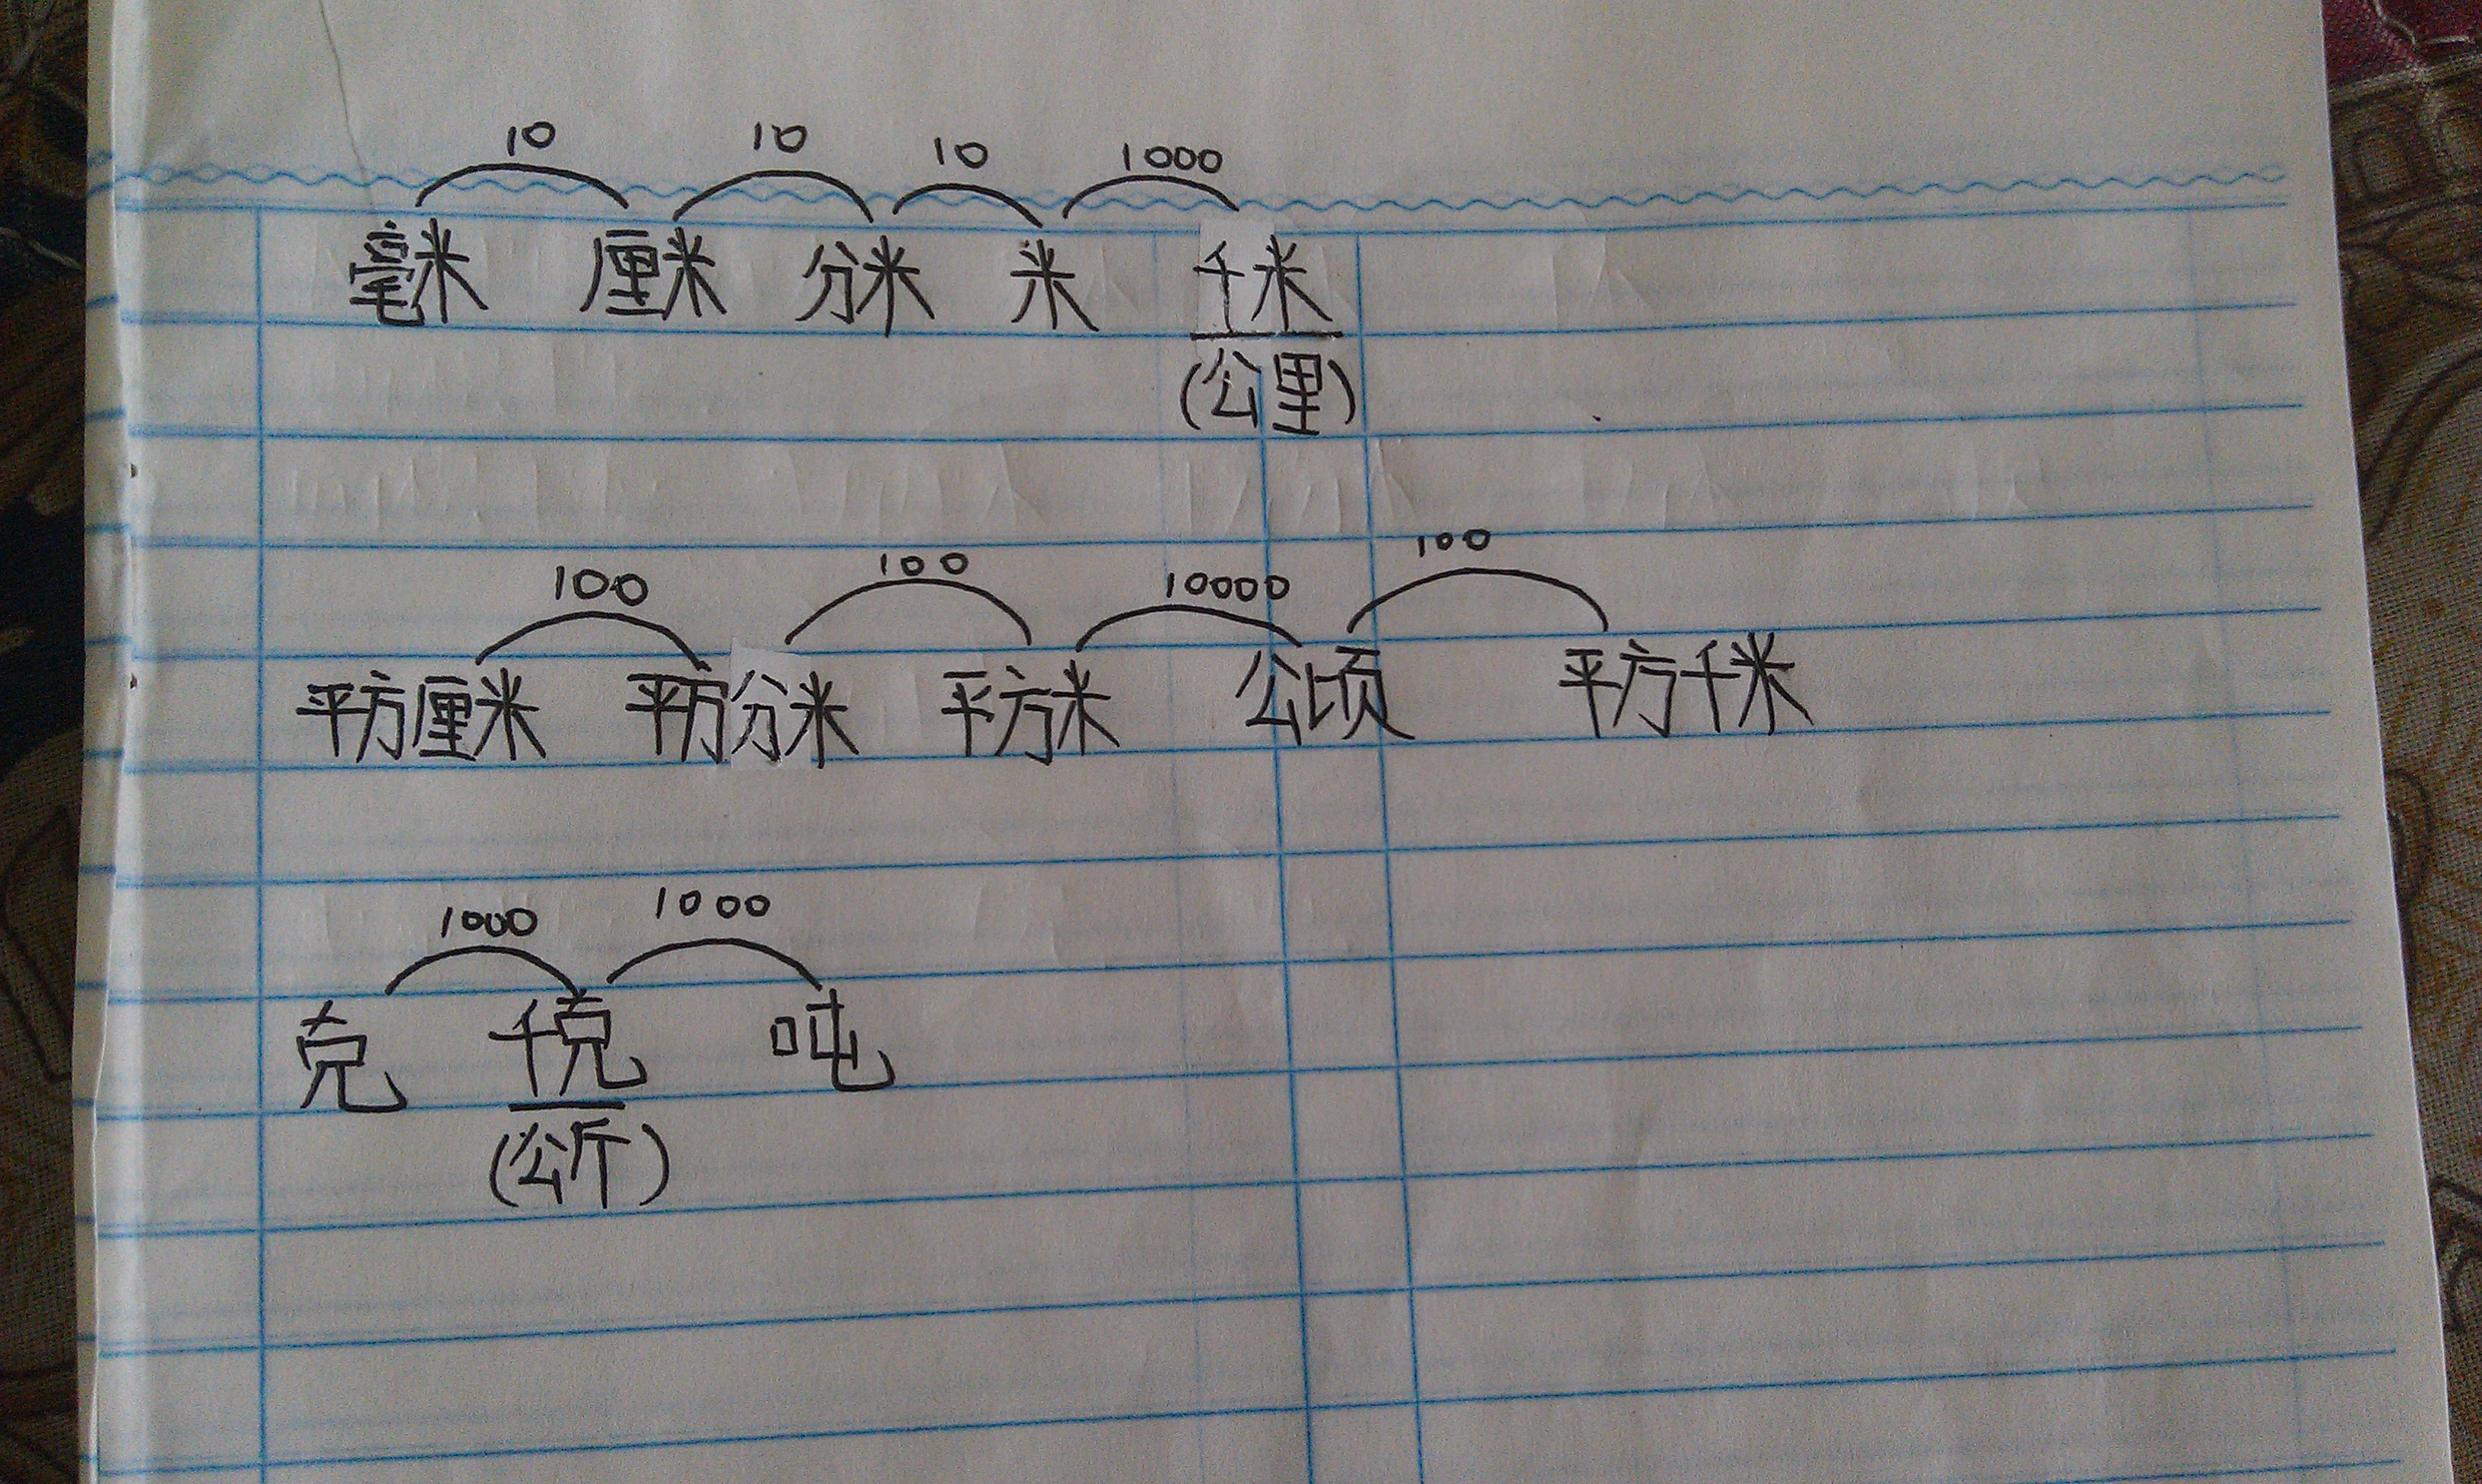 10 10 10 1000
毫米 厘米 分米 米 千米
(公里)
100 100 10000 100
平方厘米 平方分米 平方米 公顷 平方千米
1000 1000
克 千克 吨
(公斤)